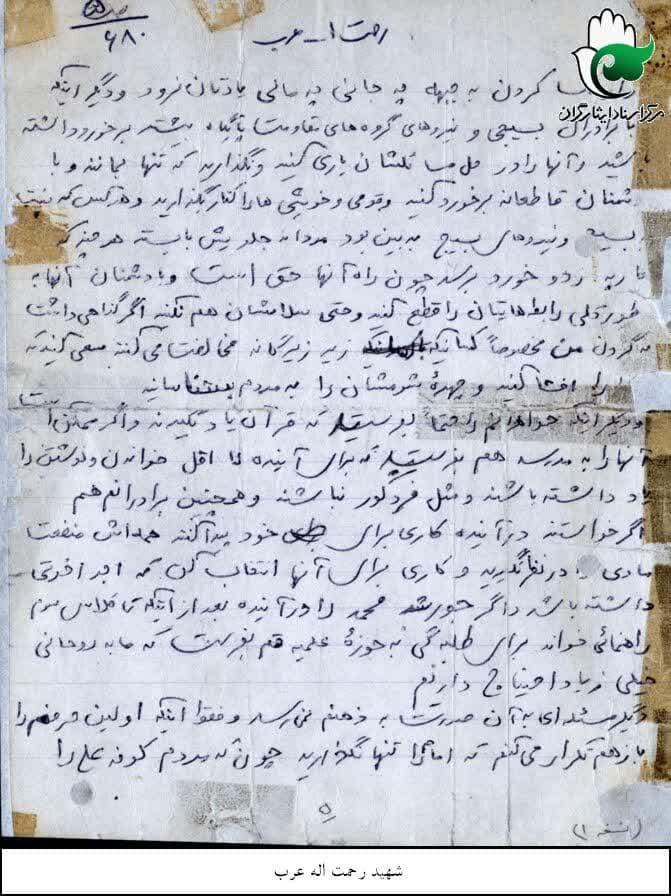 ۶۸۰
رحمت ا... عرب
مرکز اسناد ایثارگران
کردن به جبهه چه جانی چه مالی یادتان نرود و دیگر اینکه
با برادران بسیجی و نیروهای گروه‌های مقاومت پایگاه بیشتر برخورد داشته
باشید و آنها را در حل مسائلشان یاری کنید و نگذارید که تنها بمانند و با
دشمنان قاطعانه برخورد کنید و قومی و خویشی ها را کنار بگذارید و هر کس که نیت
بسیج و نیروهای بسیج به بین بود مردانه جلویش بایستد هر چند که
کار به زد و خورد برسد چون راه آنها حق است و با دشمنان آنها به
طور کلی رابط هایتان را قطع کنید و حتی سلامشان هم نکنید اگر گناهی داشت
به گردن من مخصوصاً کسانیکه زیر زیرکانه مخالفت می کنند سعی کنید که
را افشا کنید و چهرهٔ شومشان را به مردم بشناسانید
و دیگر اینکه خواهرانم را حتماً بفرستید که قرآن یاد بگیرند و اگر ممکن است
آنها را به مدرسه هم بفرستید که برای آینده لا اقل خواندن و نوشتن را
یاد داشته باشند و مثل خودم نباشند و همچنین برادرانم هم
اگر خواستند در آینده کاری برای خود پیدا کنند همه‌اش منفعت
مادی را در نظر نگیرید و کاری برای آنها انتخاب کن که اجر اخروی
داشته باشد و اگر خورشد محمد را در آینده بعد از اینکه تا کلاس سوم
راهنمائی خواند برای طلبه گی به حوزهٔ علمیه قم بفرست که ما به روحانی
خیلی زیاد احتیاج داریم
دیگر مسئله‌ای به آن صورت به ذهنم نمی رسد و فقط اینکه اولین حرفم را
باز هم تکرار می کنم که امام را تنها نگذارید چون که مردم کوفه علی را
۵
(نسخه ۱)
شهید رحمت اله عرب